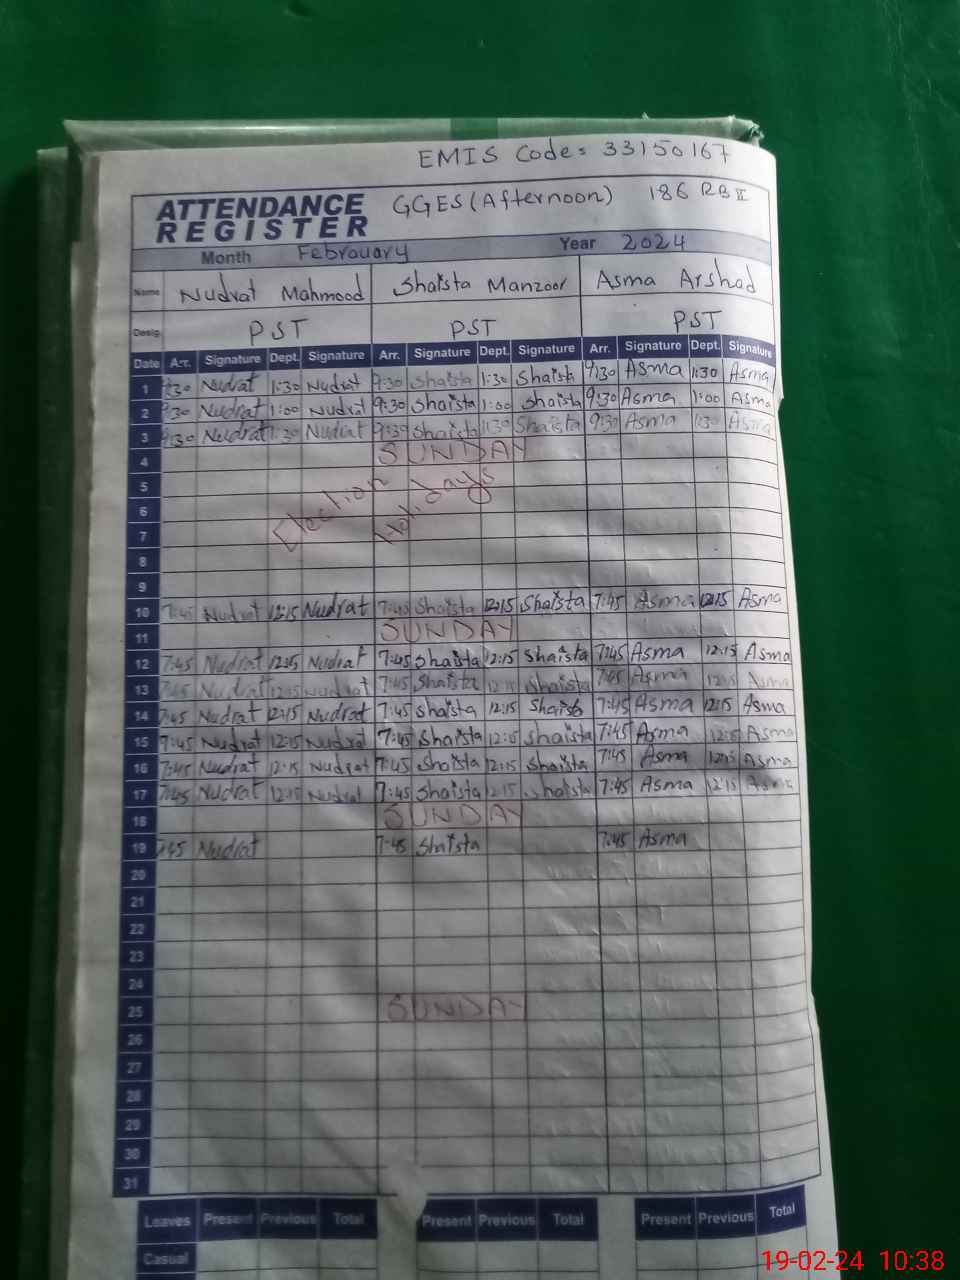 EMIS Code = 33150167
ATTENDANCE REGISTER GGES (Afternoon) 186 RB II
Month Febrauary Year 2024
Name Nudrat Mahmood Shaista Manzoor Asma Arshad
Desig. PST PST PST
Date Arr. Signature Dept. Signature Arr. Signature Dept. Signature Arr. Signature Dept. Signature
1 9:30 Nudrat 1:30 Nudrat 9:30 Shaista 1:30 Shaista 9:30 Asma 1:30 Asma
2 9:30 Nudrat 1:00 Nudrat 9:30 Shaista 1:00 Shaista 9:30 Asma 1:00 Asma
3 9:30 Nudrat 1:30 Nudrat 9:30 Shaista 1:30 Shaista 9:30 Asma 1:30 Asma
4 SUNDAY
5
6 Election Holidays
7
8
9
10 7:45 Nudrat 12:15 Nudrat 7:45 Shaista 12:15 Shaista 7:45 Asma 12:15 Asma
11 SUNDAY
12 7:45 Nudrat 12:15 Nudrat 7:45 Shaista 12:15 Shaista 7:45 Asma 12:15 Asma
13 7:45 Nudrat 12:15 Nudrat 7:45 Shaista 12:15 Shaista 7:45 Asma 12:15 Asma
14 7:45 Nudrat 12:15 Nudrat 7:45 Shaista 12:15 Shaista 7:45 Asma 12:15 Asma
15 7:45 Nudrat 12:15 Nudrat 7:45 Shaista 12:15 Shaista 7:45 Asma 12:15 Asma
16 7:45 Nudrat 12:15 Nudrat 7:45 Shaista 12:15 Shaista 7:45 Asma 12:15 Asma
17 7:45 Nudrat 12:15 Nudrat 7:45 Shaista 12:15 Shaista 7:45 Asma 12:15 Asma
18 SUNDAY
19 7:45 Nudrat 7:45 Shaista 7:45 Asma
20
21
22
23
24
25 SUNDAY
26
27
28
29
30
31
Leaves Present Previous Total Present Previous Total Present Previous Total
Casual
19-02-24 10:38